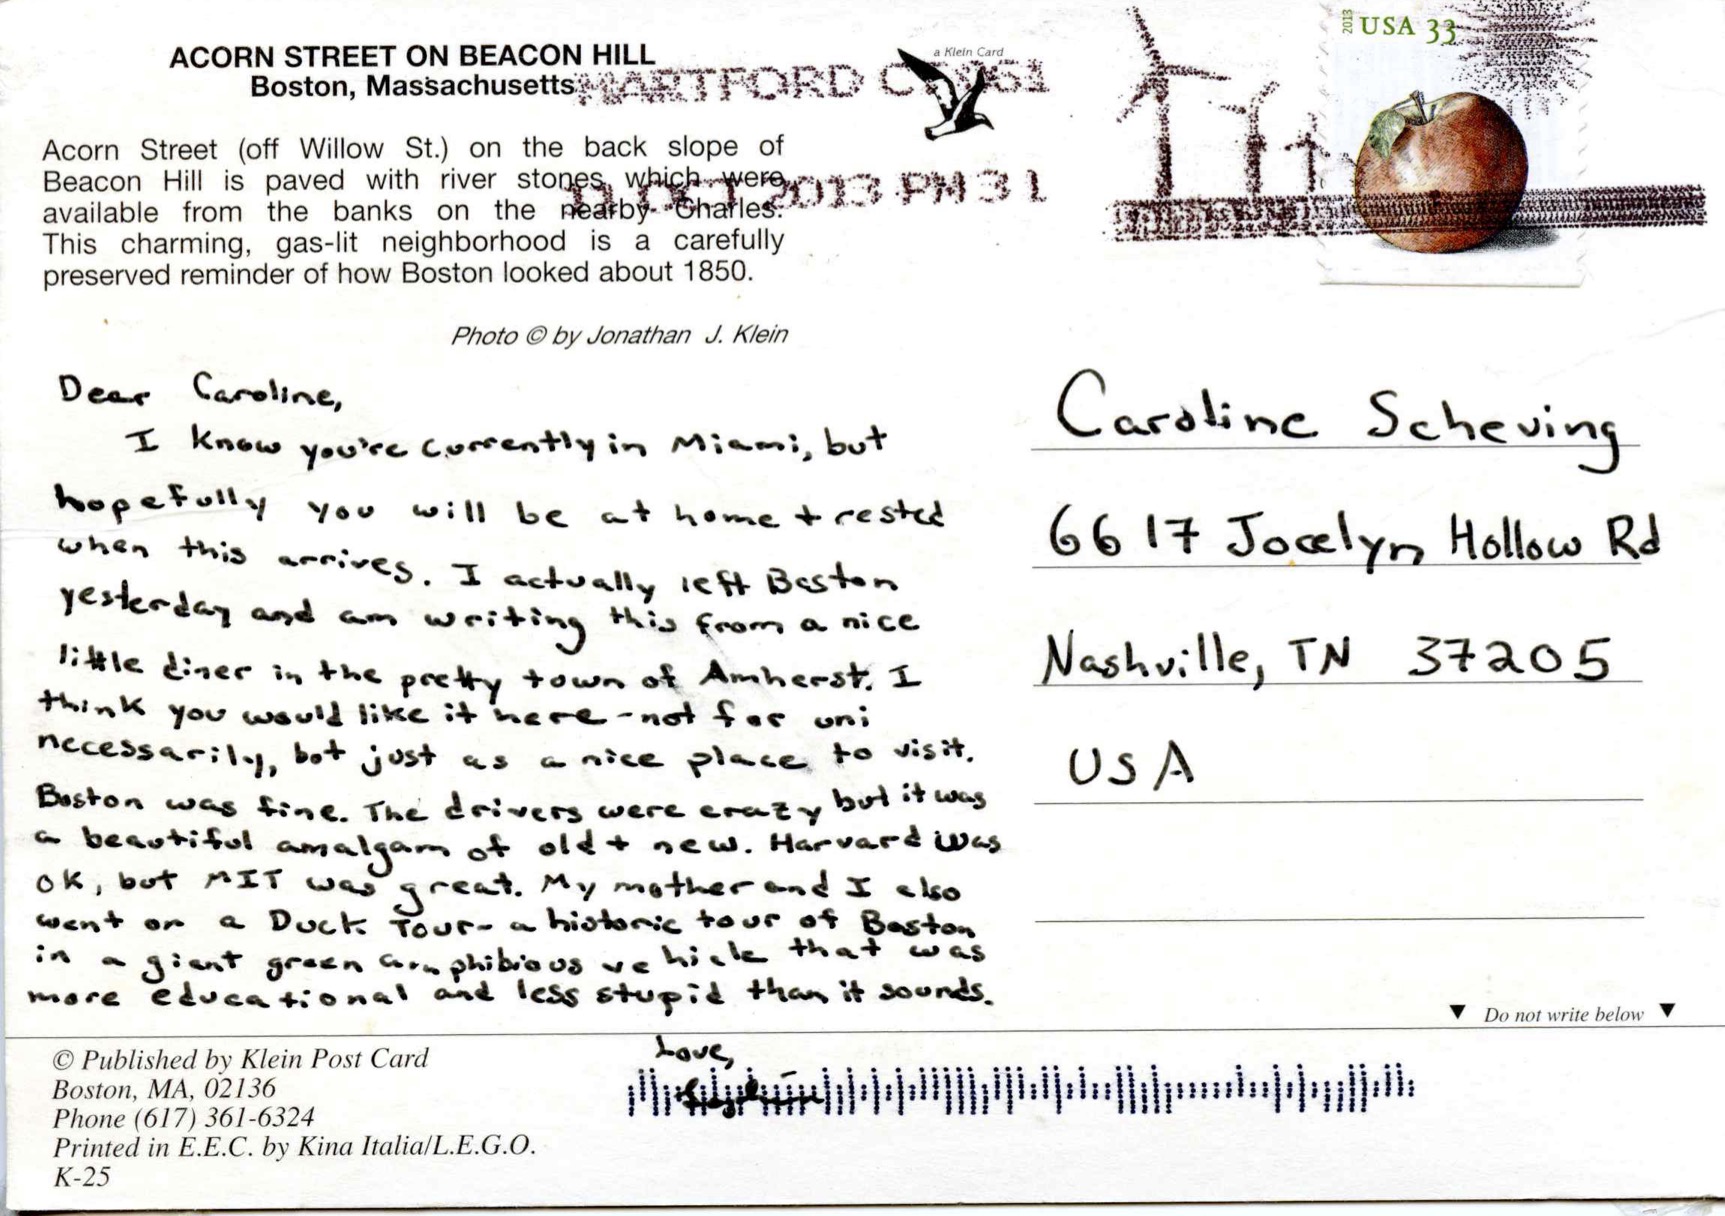 ACORN STREET ON BEACON HILL
Boston, Massachusetts
a Klein Card
HARTFORD CT 061
OCT 2013 PM 3 L
2013 USA 33
Acorn Street (off Willow St.) on the back slope of
Beacon Hill is paved with river stones which were
available from the banks on the nearby Charles.
This charming, gas-lit neighborhood is a carefully
preserved reminder of how Boston looked about 1850.
Photo © by Jonathan J. Klein
Dear Caroline,
I know you're currently in Miami, but
hopefully you will be at home + rested
when this arrives. I actually left Boston
yesterday and am writing this from a nice
little diner in the pretty town of Amherst. I
think you would like it here - not for uni
necessarily, but just as a nice place to visit.
Boston was fine. The drivers were crazy but it was
a beautiful amalgam of old + new. Harvard was
OK, but MIT was great. My mother and I also
went on a Duck Tour - a historic tour of Boston
in a giant green amphibious vehicle that was
more educational and less stupid than it sounds.
Love,
Caroline Scheving
6617 Jocelyn Hollow Rd
Nashville, TN 37205
USA
▼ Do not write below ▼
© Published by Klein Post Card
Boston, MA, 02136
Phone (617) 361-6324
Printed in E.E.C. by Kina Italia/L.E.G.O.
K-25